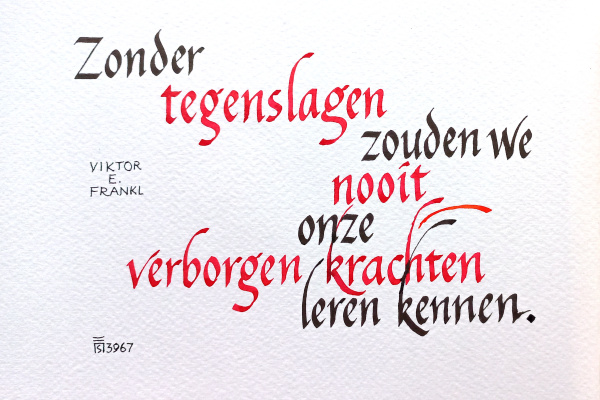 Zonder
tegenslagen
zouden we
nooit
onze
verborgen krachten
leren kennen.
VIKTOR
E.
FRANKL
3967